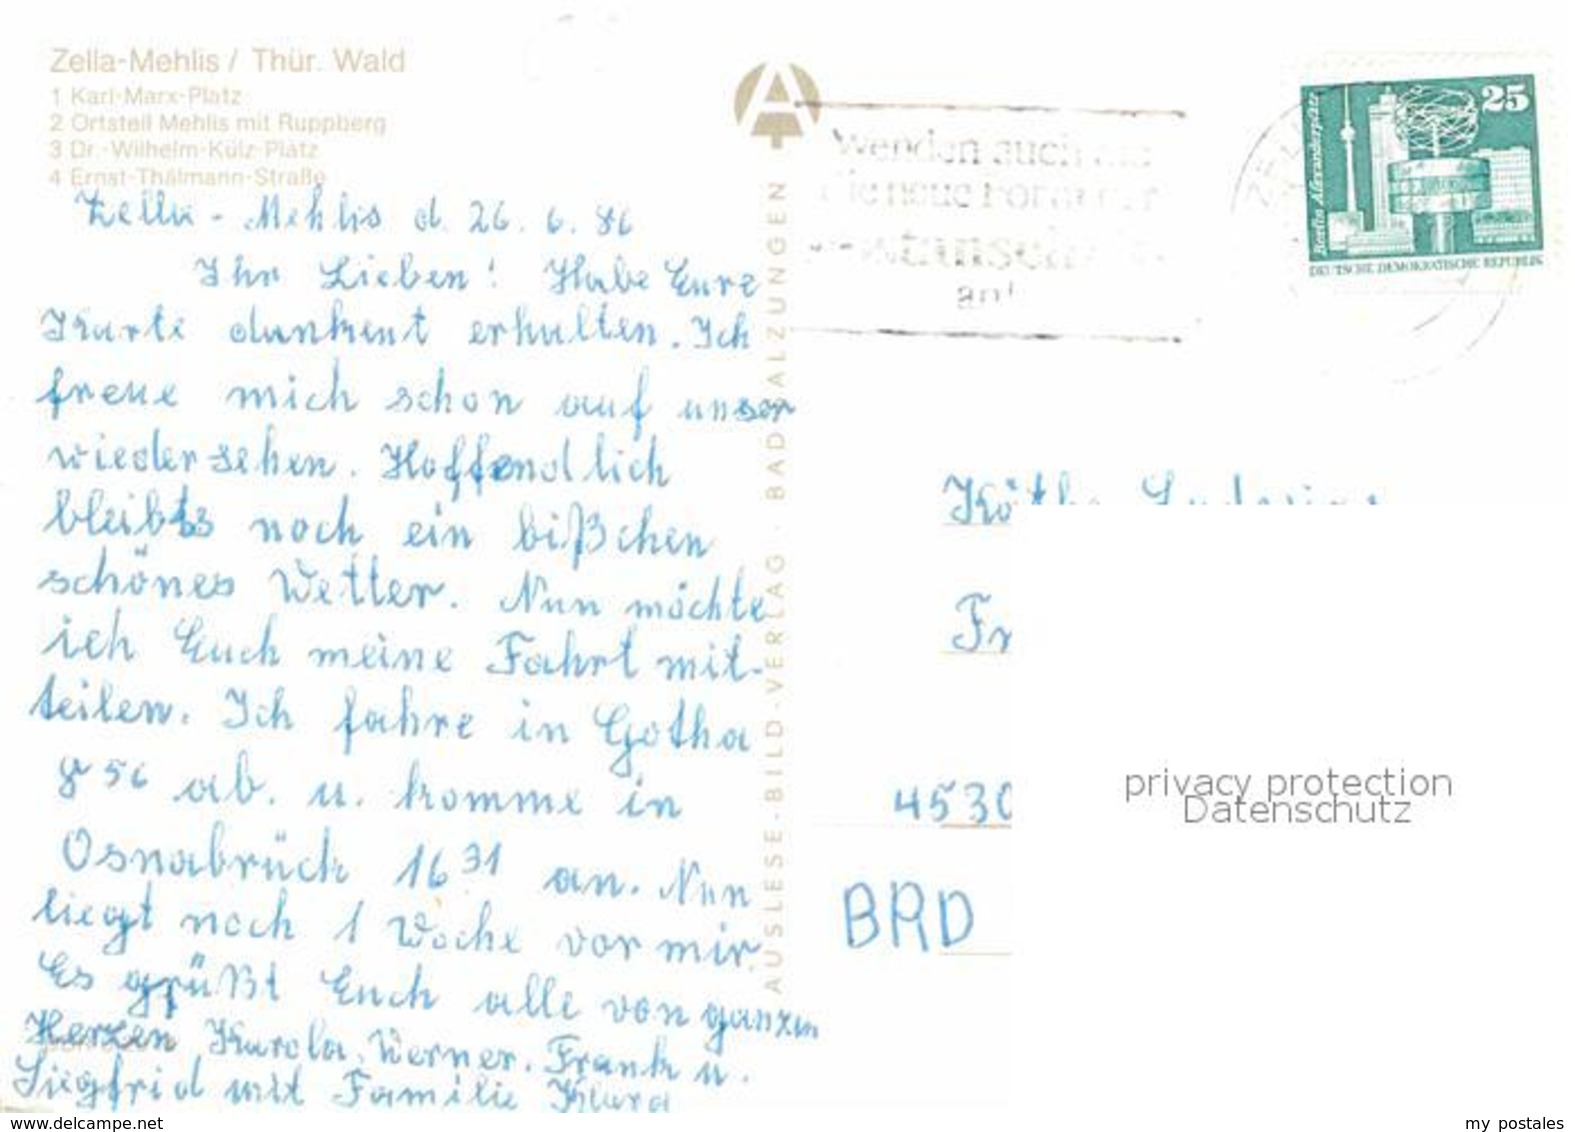 Zella-Mehlis / Thür. Wald
1 Karl-Marx-Platz
2 Ortsteil Mehlis mit Ruppberg
3 Dr.-Wilhelm-Külz-Platz
4 Ernst-Thälmann-Straße
Zella-Mehlis d. 26. 6. 86
Ihr Lieben! Habe Eure
Karte dankent erhalten. Ich
freue mich schon auf unser
wiedersehen. Hoffendlich
bleibts noch ein bißchen
schönes Wetter. Nun möchte
ich Euch meine Fahrt mit-
teilen. Ich fahre in Gotha
8 56 ab. u. komme in
Osnabrück 16 31 an. Nun
liegt noch 1 Woche vor mir.
Es grüßt Euch alle von ganzen
Herzen Karola, Werner, Frank u.
Siegfried mit Familie Klara
AUSLESE-BILD-VERLAG · BAD SALZUNGEN
Wenden auch
die neue Form der
an!
25
Berlin, Alexanderplatz
DEUTSCHE DEMOKRATISCHE REPUBLIK
Käthe
Fr
4530
BRD
privacy protection
Datenschutz
www.delcampe.net
my postales